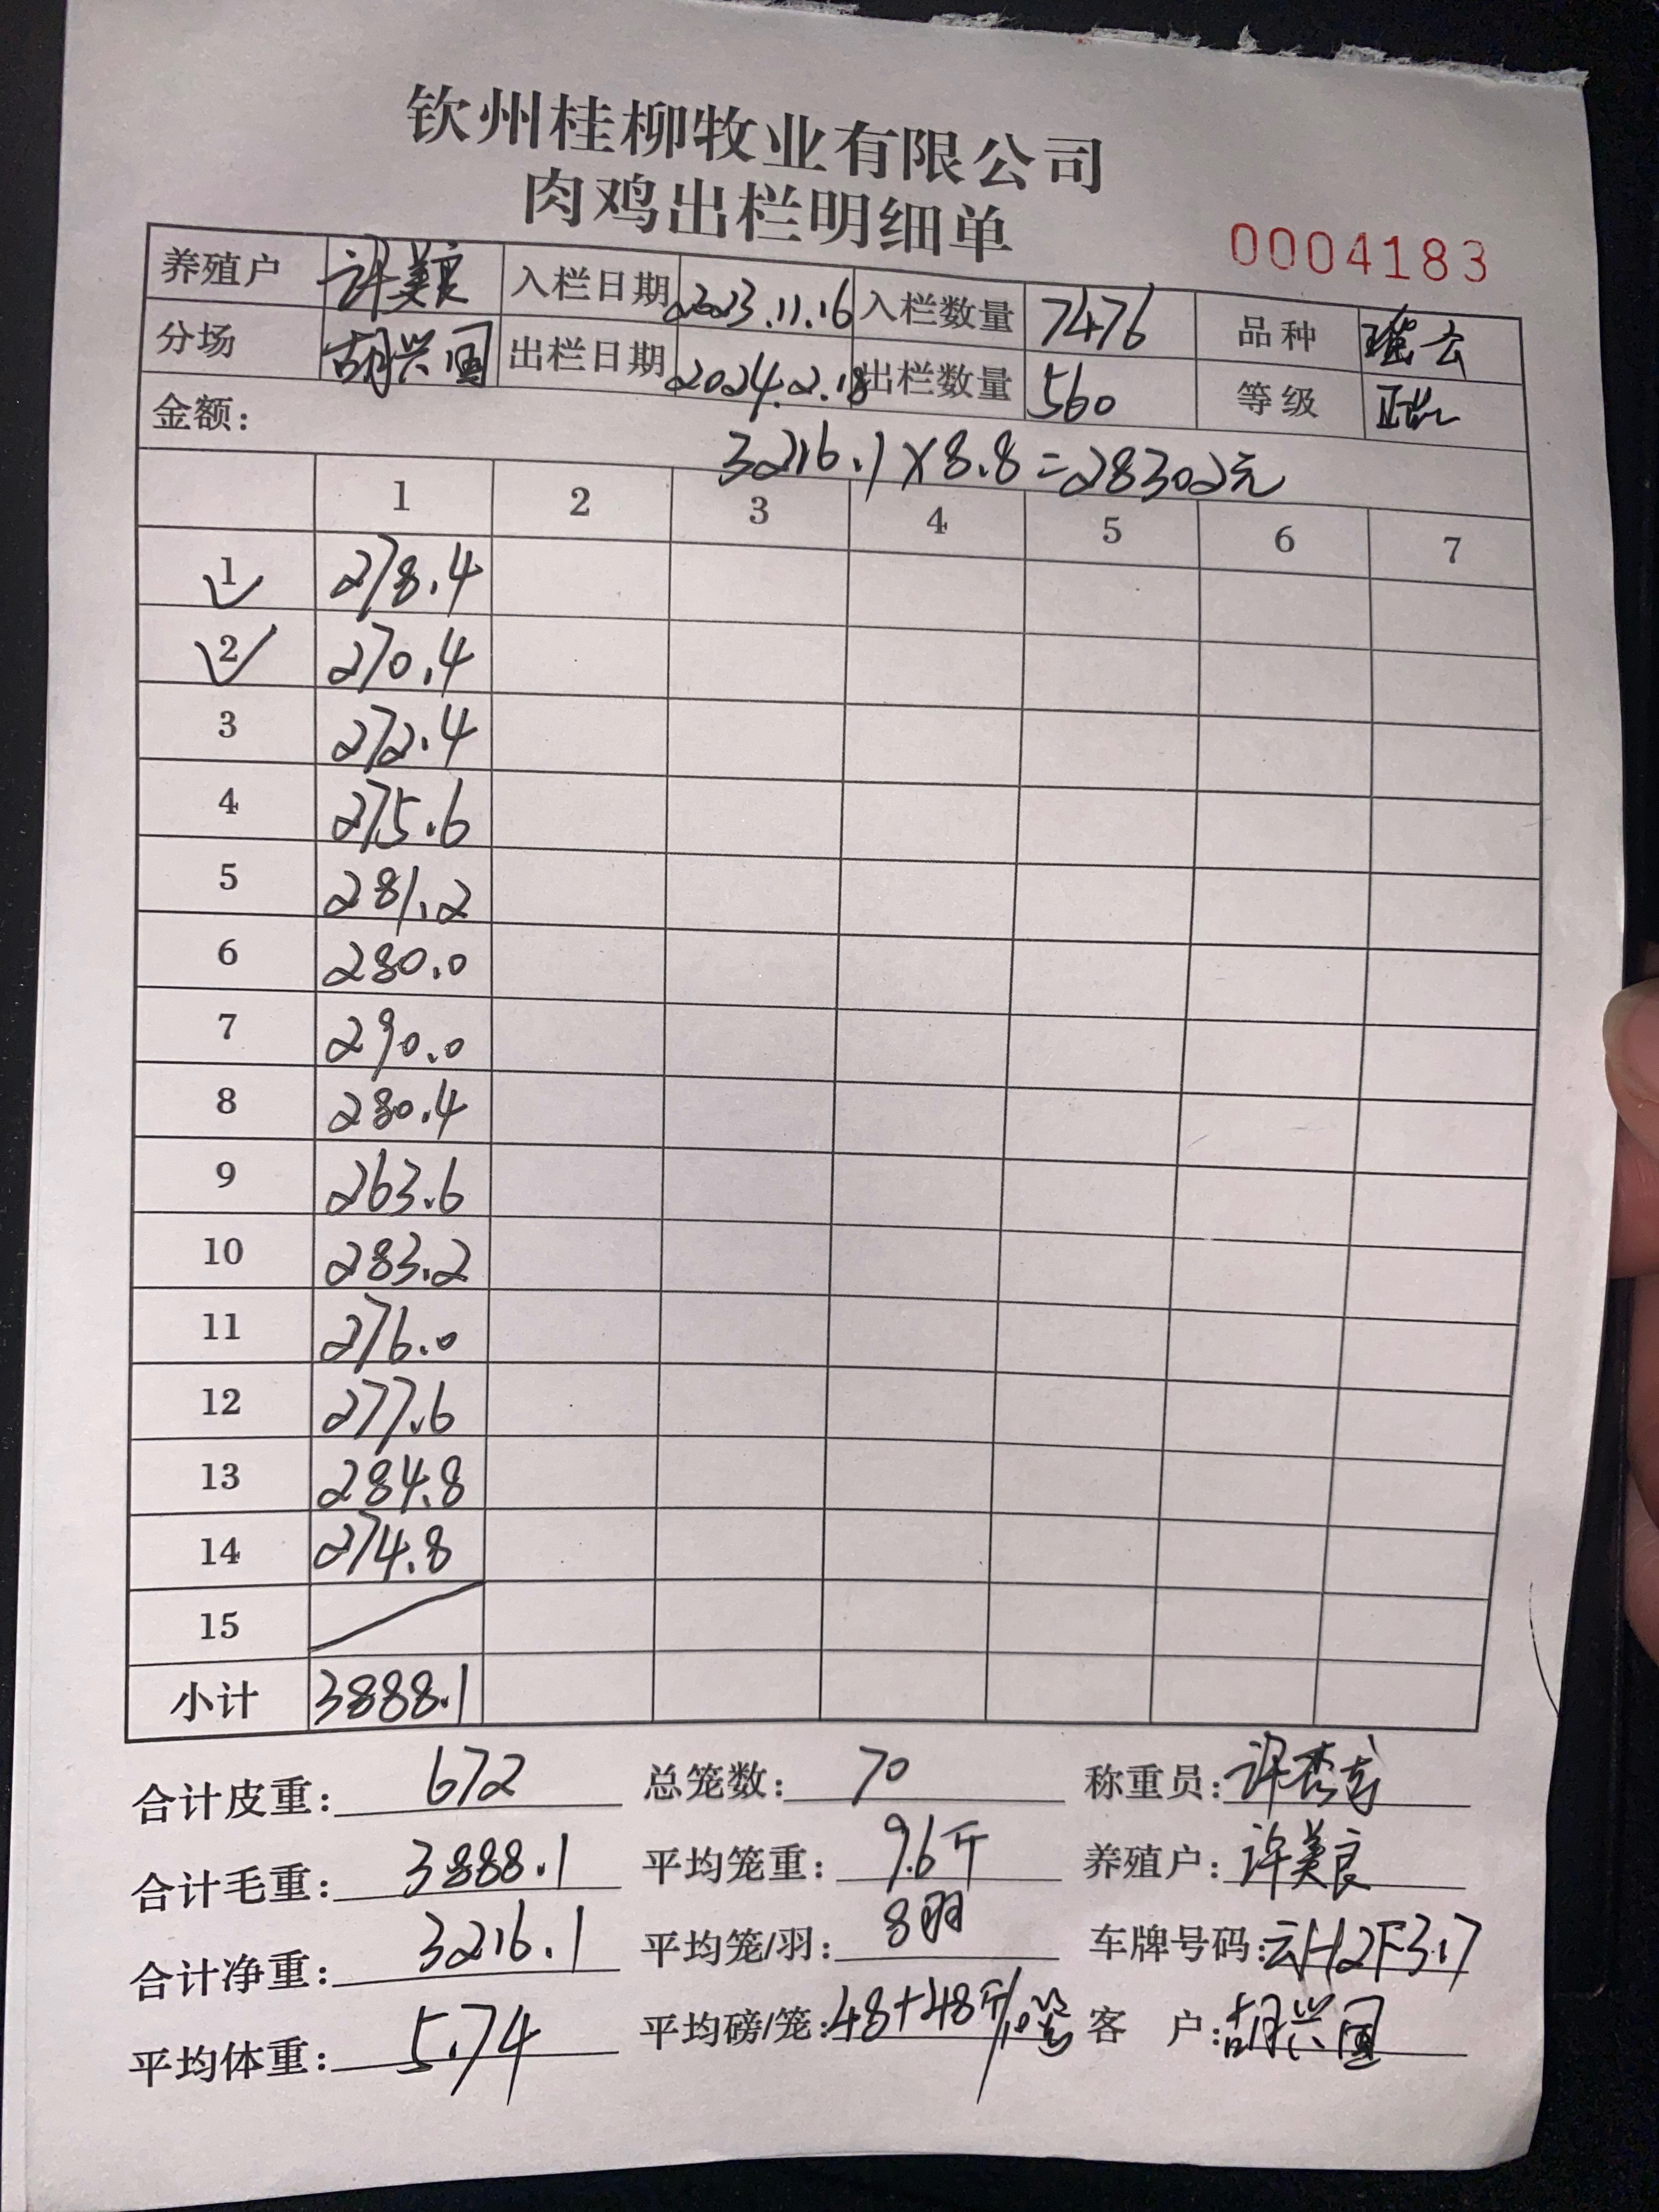 钦州桂柳牧业有限公司
肉鸡出栏明细单
0004183
养殖户 许美良 入栏日期 2023.11.16 入栏数量 7476 品种
分场 胡兴国 出栏日期 2024.2.18 出栏数量 560 等级
金额: 3216.1×8.8=28302元
1 2 3 4 5 6 7
1 278.4
2 270.4
3 272.4
4 275.6
5 281.2
6 280.0
7 290.0
8 280.4
9 263.6
10 283.2
11 276.0
12 277.6
13 284.8
14 274.8
15
小计 3888.1
合计皮重: 672 总笼数: 70 称重员:
合计毛重: 3888.1 平均笼重: 9.6斤 养殖户: 许美良
合计净重: 3216.1 平均笼/羽: 8羽 车牌号码: 云H2F317
平均体重: 5.74 平均磅/笼: 48+48斤/10笼 客 户: 胡兴国